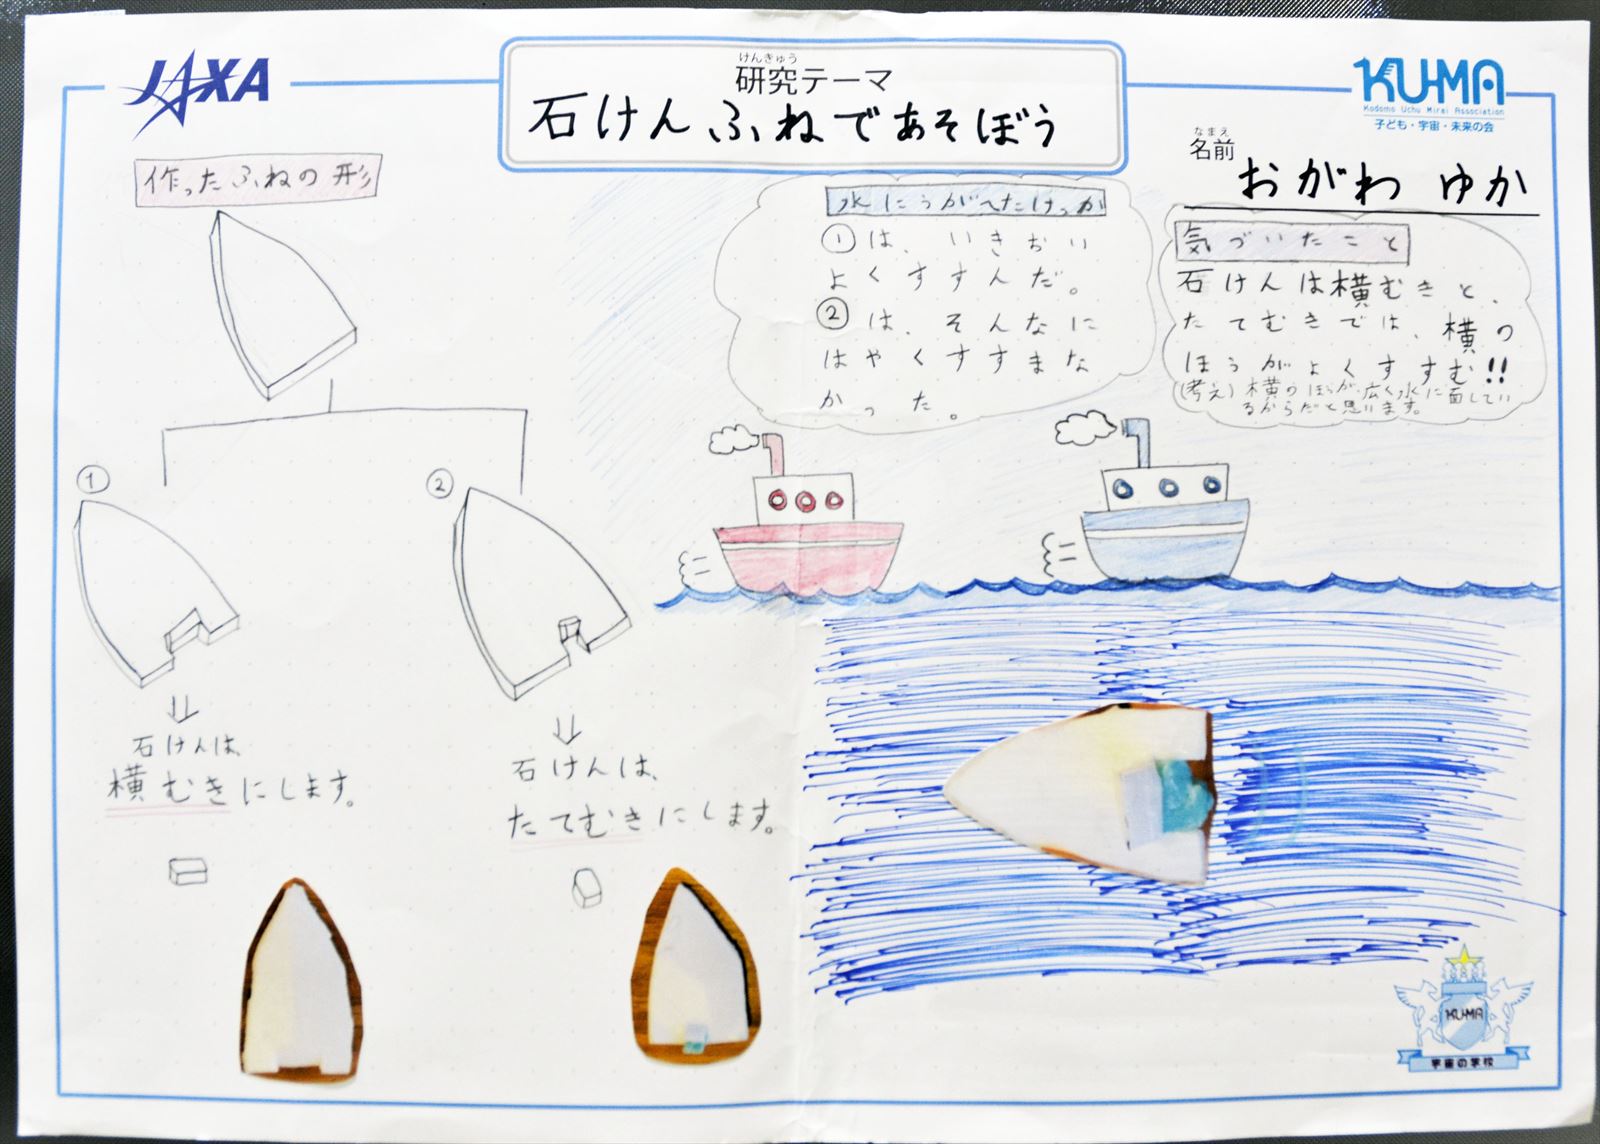 JAXA
けんきゅう
研究テーマ
石けんふねであそぼう
KU-MA
Kodomo Uchu Mirai Association
子ども・宇宙・未来の会
なまえ
名前
おがわ ゆか
作ったふねの形
①
石けんは、
横むきにします。
②
石けんは、
たてむきにします。
水にうかべたけっか
①は、いきおい
よくすすんだ。
②は、そんなに
はやくすすまな
かった。
気づいたこと
石けんは横むきと、
たてむきでは、横の
ほうがよくすすむ!!
(考え)横のほうが、広く水に面してい
るからだと思います。
KU-MA
宇宙の学校